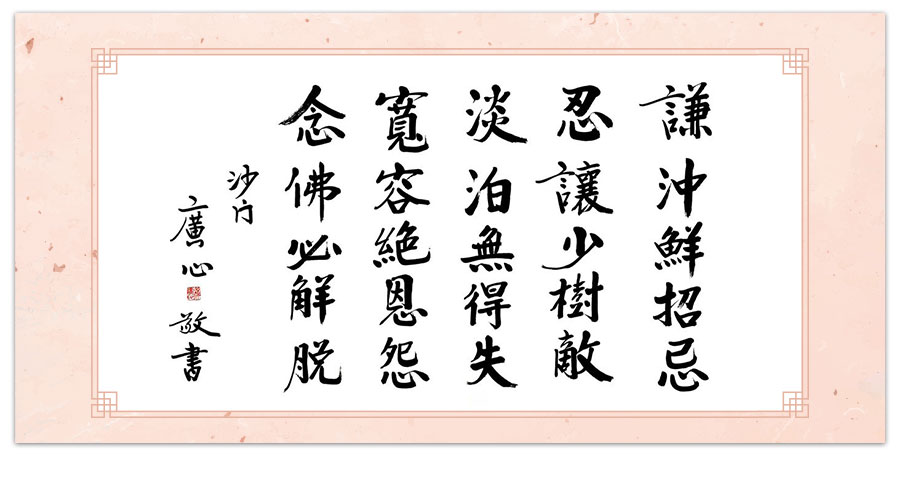 謙沖鮮招忌
忍讓少樹敵
淡泊無得失
寬容絕恩怨
念佛必解脫
沙门
廣心
敬書